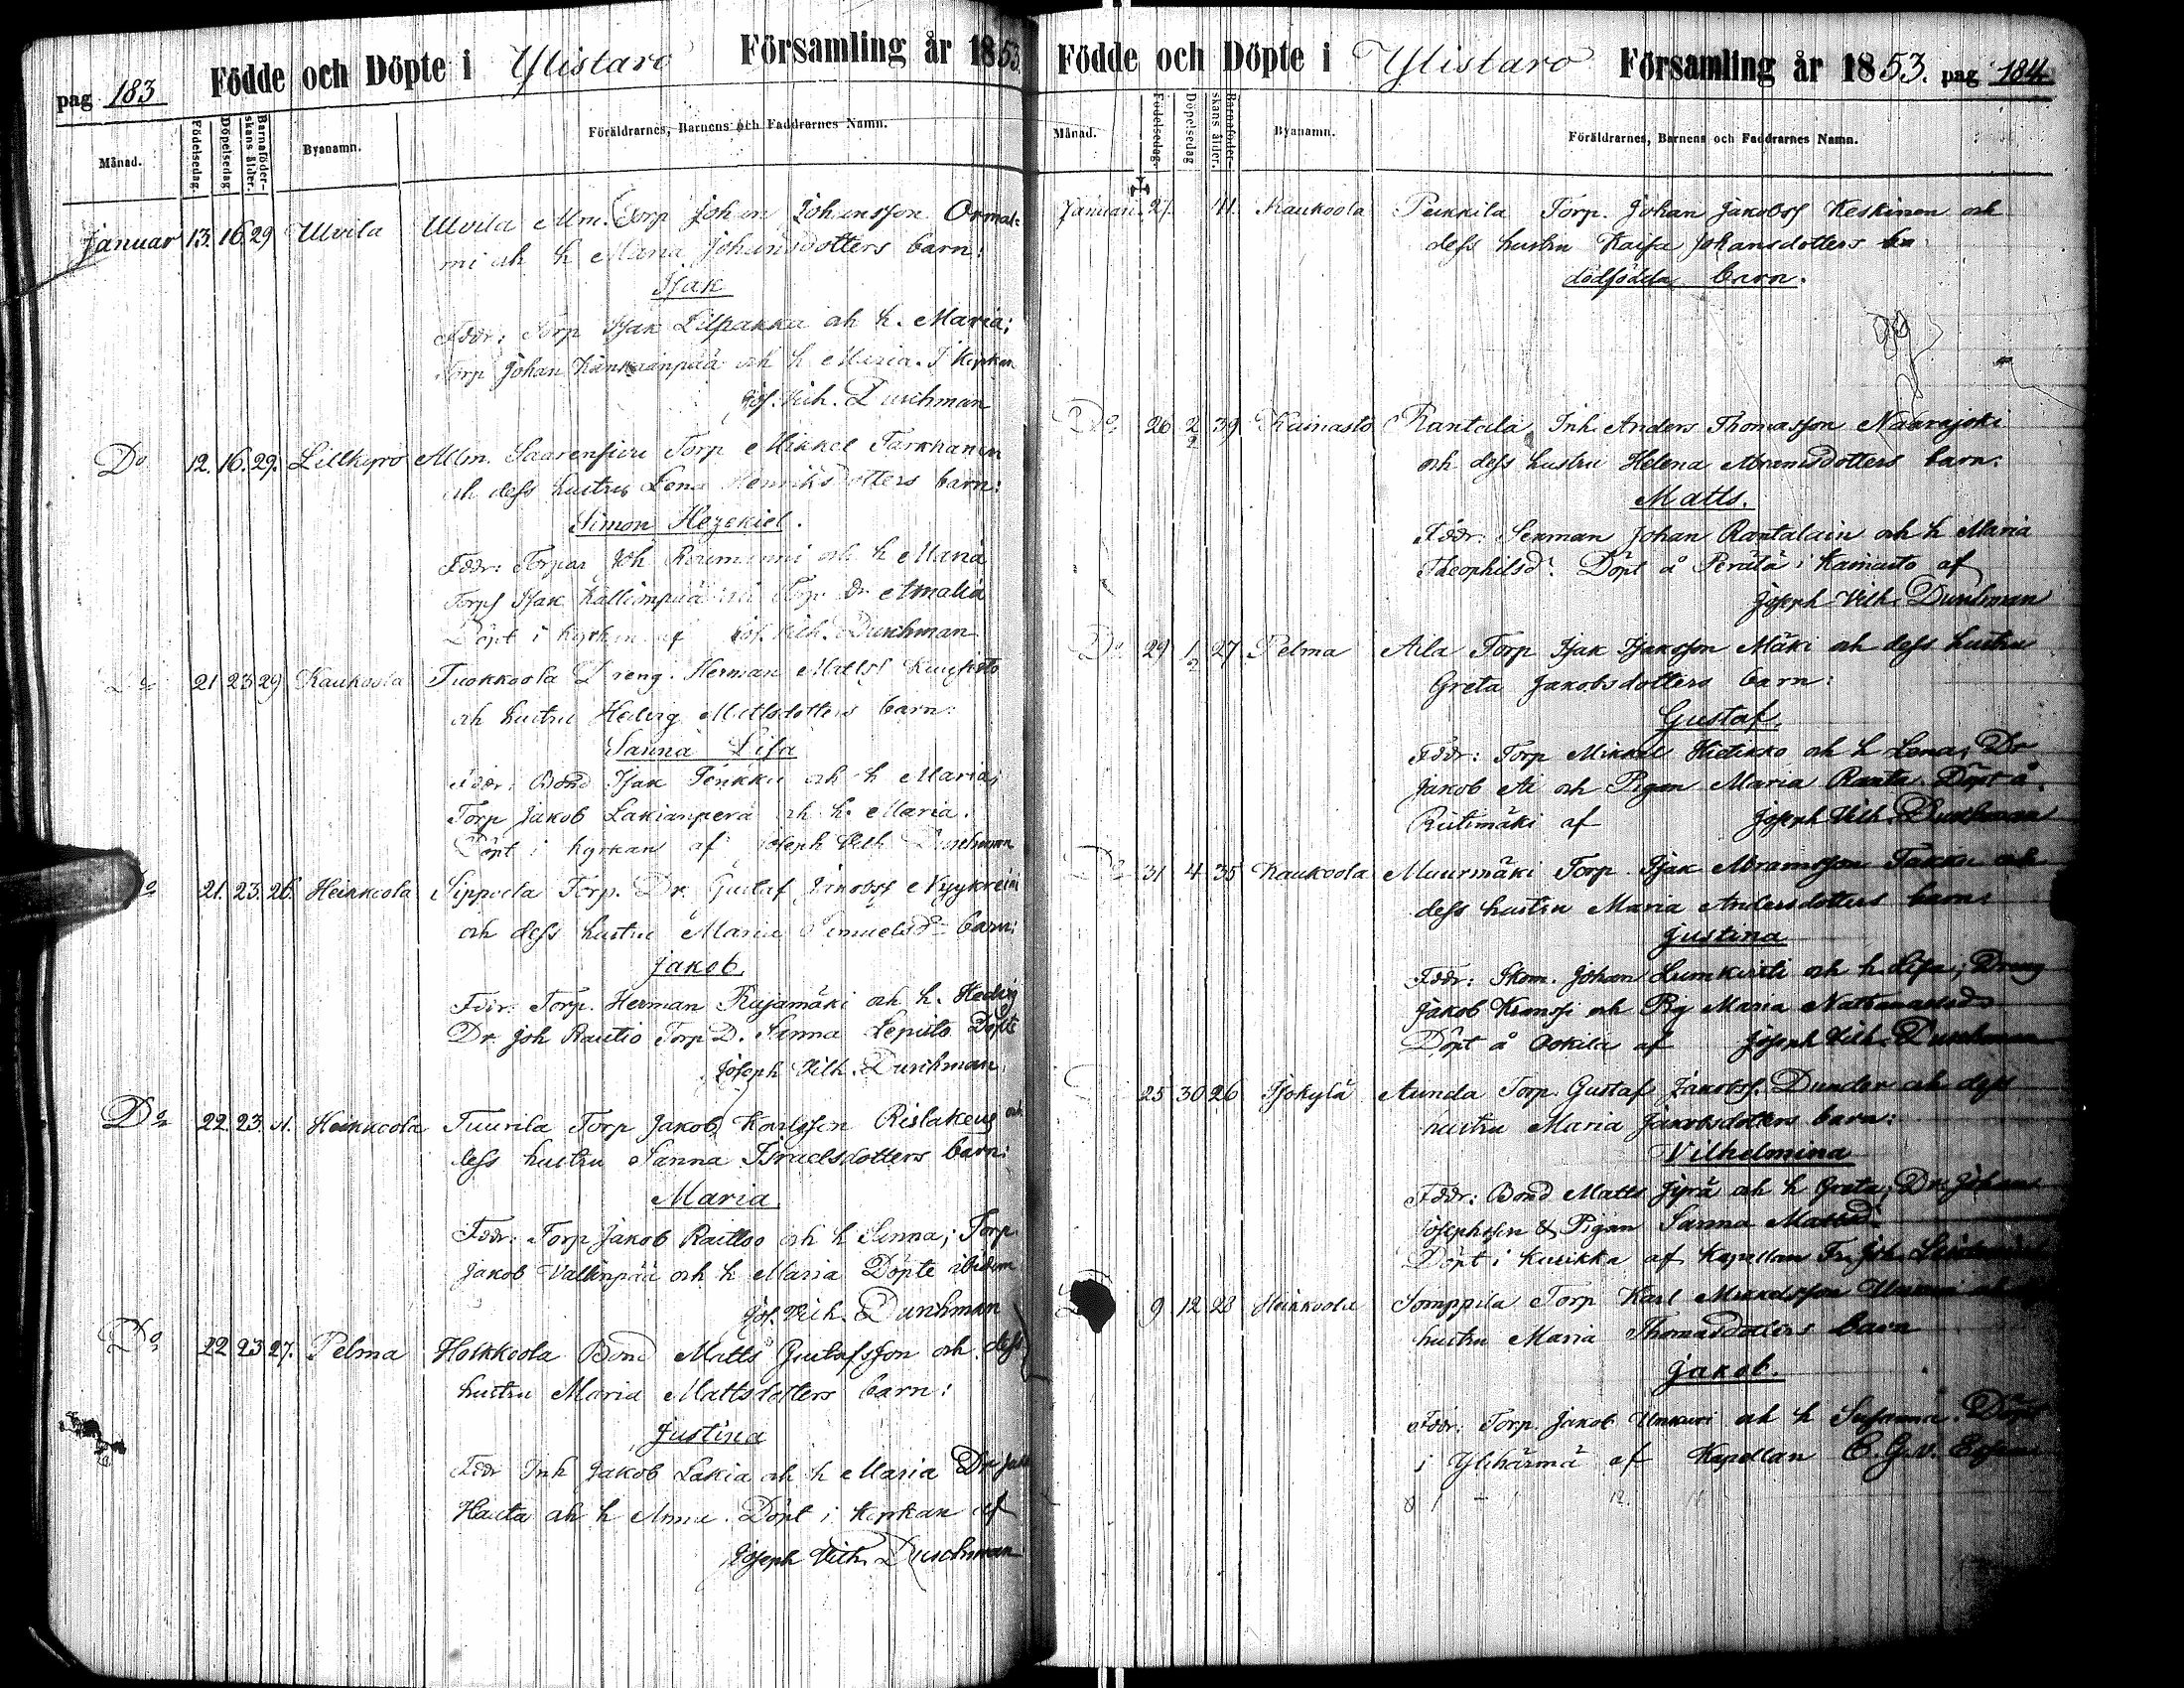 pag 183 Födde och Döpte i Ylistaro Församling år 1853.
Månad. Födelsedag. Döpelsedag Barnaföderskans ålder. Byanamn. Föräldrarnes, Barnens och Faddrarnes Namn.
Januar 13. 16. 29 Ulvila Ulvila Torp Johan Johansson Ormal-
mi och h Maria Johansdotters barn:
Isak
Faddr: Torp Isak Lilpakka och h. Maria;
Torp Johan Kankaanpää och h Maria. I Kyrkan
Jos. Vilh. Durchman
Do 12. 16. 29. Lillkyro Mlm. Torp Mikkel Tarkkanen
och dess hustru Lena Henriksdotters barn:
Simon Hezekiel.
Faddr: Torpar Joh och h Maria
Torps Isak Kallionpää Dr Amalia
Döpt i kyrkan af Jos. Vilh. Durchman
Do 21 23 29 Kaukoola Tuokkoola Dreng. Herman Matss Kuusisto
och hustru Hedvig Mattsdotters barn:
Sanna Lisa
Faddr: Bond Isak Penkku och h Maria,
Torp Jakob Lakianperä och h. Maria.
Döpt i kyrkan af Joseph Vilh Durchman
Do 21. 23. 26. Heikkoola Sippola Torp. Dr. Gustaf Jakobss Nyykreini
och dess hustru Maria Samuelsd barn:
Jakob.
Faddr: Torp. Herman Rajamäki och h. Hedvig
Dr. Joh Rautio Torp D. Sanna Lepistö Döpte
Joseph Vilh. Durchman.
Do 22. 23. Heikkoola Tuurila Torp Jakob Karlsson Rislakeus och
dess hustru Sanna Israelsdotters barn:
Maria
Faddr: Torp Jakob Raittoo och h Sanna; Torp.
Jakob Vallinpää och h Maria Döpte ibidem
Jos. Vilh. Durchman
Do 22 23 27. Pelma Hokkoola Bond Matts Gustafsson och dess
hustru Maria Mattsdotters barn:
Justina
Faddr Inh Jakob Lakia och h Maria Dr
Hauta och h Anna. Döpt i kyrkan af
Joseph Vilh. Durchman
Födde och Döpte i Ylistaro Församling år 1853. pag 184
Månad. Födelsedag. Döpelsedag Barnaföderskans ålder. Byanamn. Föräldrarnes, Barnens och Faddrarnes Namn.
Januari 27. 41. Kaukoola Pukkila Torp. Johan Jakobss Keskinen och
dess hustru Kaisa Johansdotters
dödfödda barn.
Do 26 2/2 39 Kainasto Rantala Inh. Anders Thomasson Naarajoki
och dess hustru Helena Abramsdotters barn:
Matts.
Faddr: Sexman Johan Rantalain och h Maria
Theophilsd. Döpt å Perälä i Kainasto af
Joseph Vilh. Durchman
Do 29 1/2 27 Pelma Aila Torp Isak Isaksson Mäki och dess hustru
Greta Jakobsdotters barn:
Gustaf.
Faddr: Torp Mikkel Hietikko och h Lena; Dr
Jakob Ai och Pigan Maria Ranta Döpt å
Riitimäki af Joseph Vilh. Durchman
Do 31 4 35 Kaukoola Muurmäki Torp. Isak Abramsson Takku och
dess hustru Maria Andersdotters barn:
Justina
Faddr: Skom. Johan Lumkiski och h Lisa; Dreng
Jakob och Pig Maria
Döpt å Ookila af Joseph Vilh. Durchman
25 30 26 Isokylä Aunda Torp. Gustaf Jakobss. Dunder och dess
hustru Maria Jakobsdotters barn:
Vilhelmina
Faddr: Bond Matts Jyrä och h Greta; Dr. Johan
Josephsson & Pigan Sanna Mattsd
Döpt i Kurikka af Kapellan Fr. Joh.
9 12 28 Heikkoola Somppila Torp Karl
hustru Maria Thomasdotters barn
Jakob.
Faddr: Torp. Jakob Unkuri och h Susanna. Döpt
i Ylihärmä af Kapellan C. G. V.